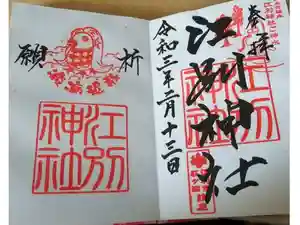 奉拝
江別神社
令和三年二月十三日
江別
神社
祈
願
江別
神社